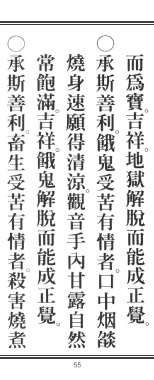 而為寶吉祥。地獄解脫而能成正覺。
○承斯善利。餓鬼受苦有情者。口中烟燄
燒身速願得清涼。觀音手內甘露自然
常飽滿。吉祥。餓鬼解脫而能成正覺。
○承斯善利。畜生受苦有情者。殺害燒煮
55